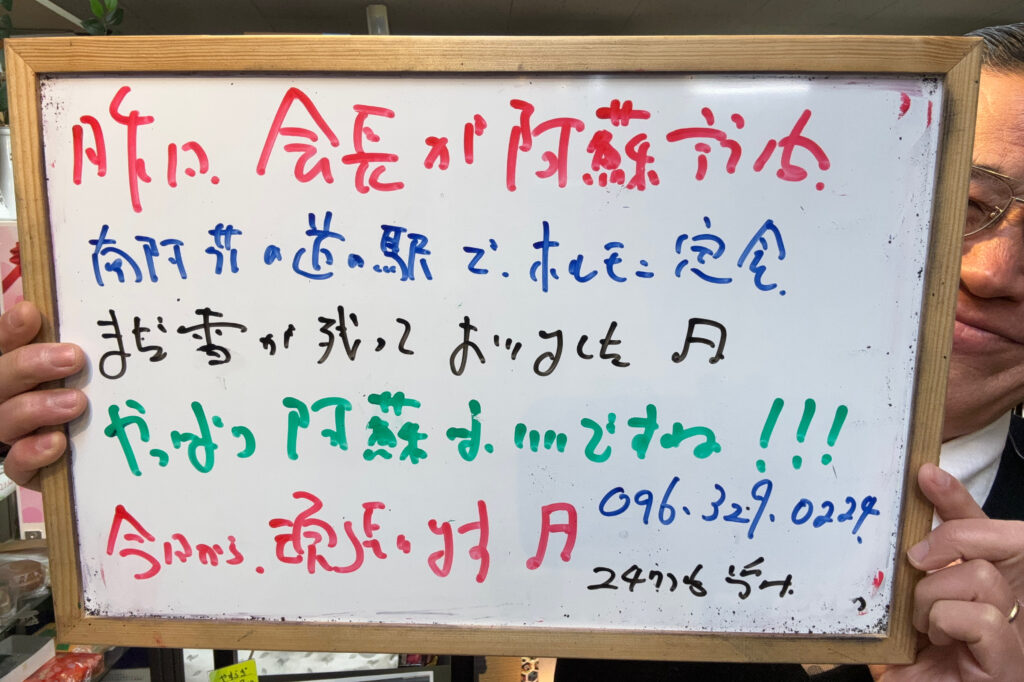 昨日、会長が阿蘇方法、
南阿蘇の道の駅で、ホルモン定食、
まだ雪が残っておいました 月
やっぱり阿蘇はいいですね!!!
今日から、頑張ります 月
096.329.0224